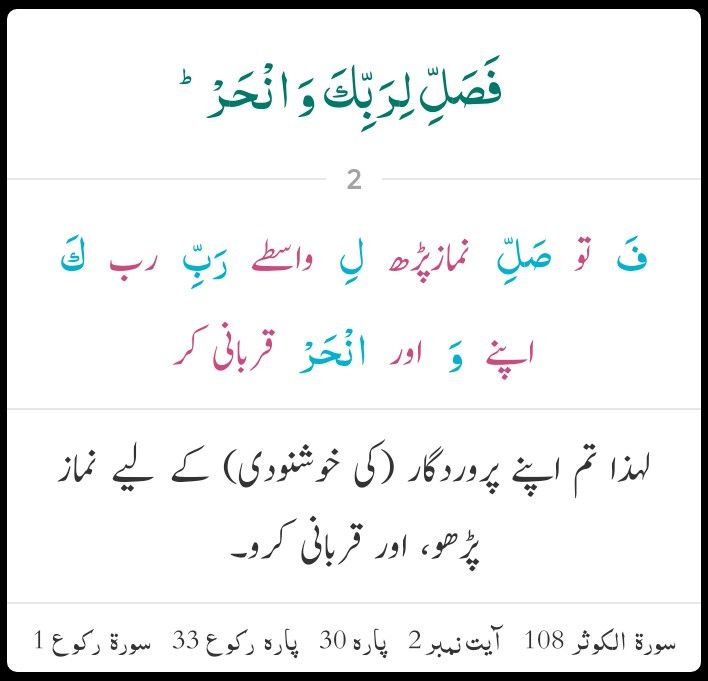 فَصَلِّ لِرَبِّكَ وَ انْحَرْ ؕ
2
فَ تو صَلِّ نماز پڑھ لِ واسطے رَبِّ رب كَ
اپنے وَ اور انْحَرْ قربانی کر
لہذا تم اپنے پروردگار (کی خوشنودی) کے لیے نماز
پڑھو، اور قربانی کرو۔
سورۃ الکوثر 108 آیت نمبر 2 پارہ 30 پارہ رکوع 33 سورۃ رکوع 1